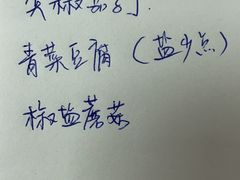 尖椒茄子.
青菜豆腐（盐少点）
椒盐蘑菇